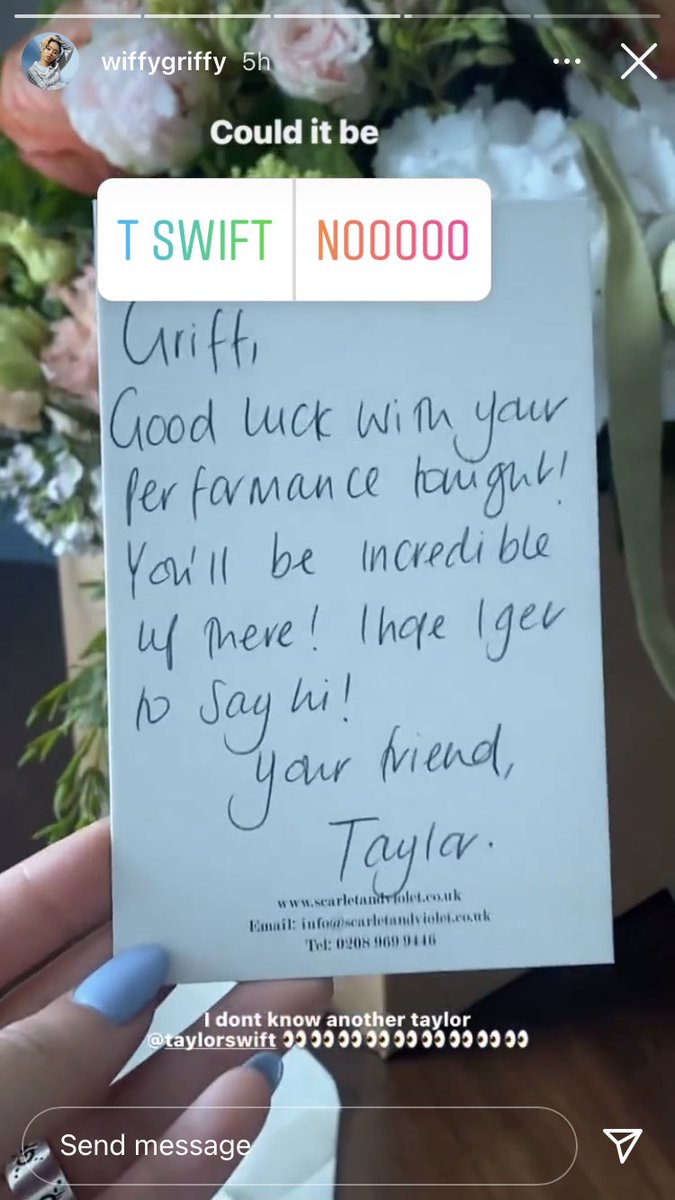 wiffygriffy 5h
Could it be
T SWIFT NOOOOO
Griff,
Good luck with your
performance tonight!
You'll be incredible
up there! I hope I get
to say hi!
Your friend,
Taylor.
www.scarletandviolet.co.uk
Email: info@scarletandviolet.co.uk
Tel: 0208 969 9446
I dont know another taylor
@taylorswift 👀👀👀👀👀👀👀👀👀👀👀👀👀
Send message